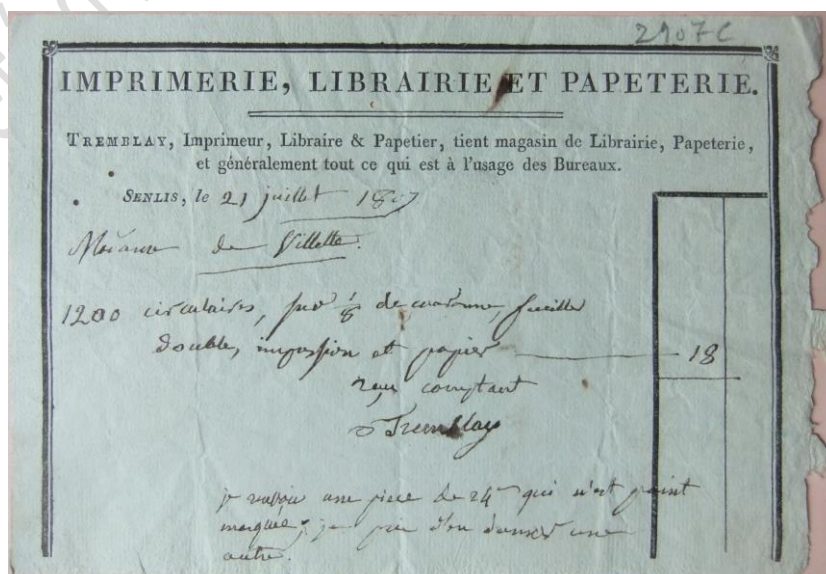 2907 C
IMPRIMERIE, LIBRAIRIE ET PAPETERIE.
TREMBLAY, Imprimeur, Libraire & Papetier, tient magasin de Librairie, Papeterie,
et généralement tout ce qui est à l'usage des Bureaux.
SENLIS, le 21 juillet 1807
Madame de Villette.
1200 circulaires, 1/8 de couronne, feuilles
double, impression et papier 18
reçu comptant
Tremblay
je renvoie une piece de 24 qui n'est point
marquée; je prie d'en donner une
autre.